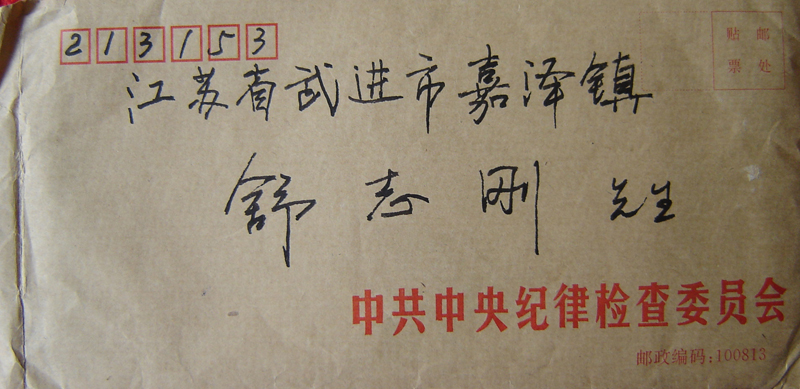 213153
贴邮
票处
江苏省武进市嘉泽镇
舒志刚 先生
中共中央纪律检查委员会
邮政编码:100813